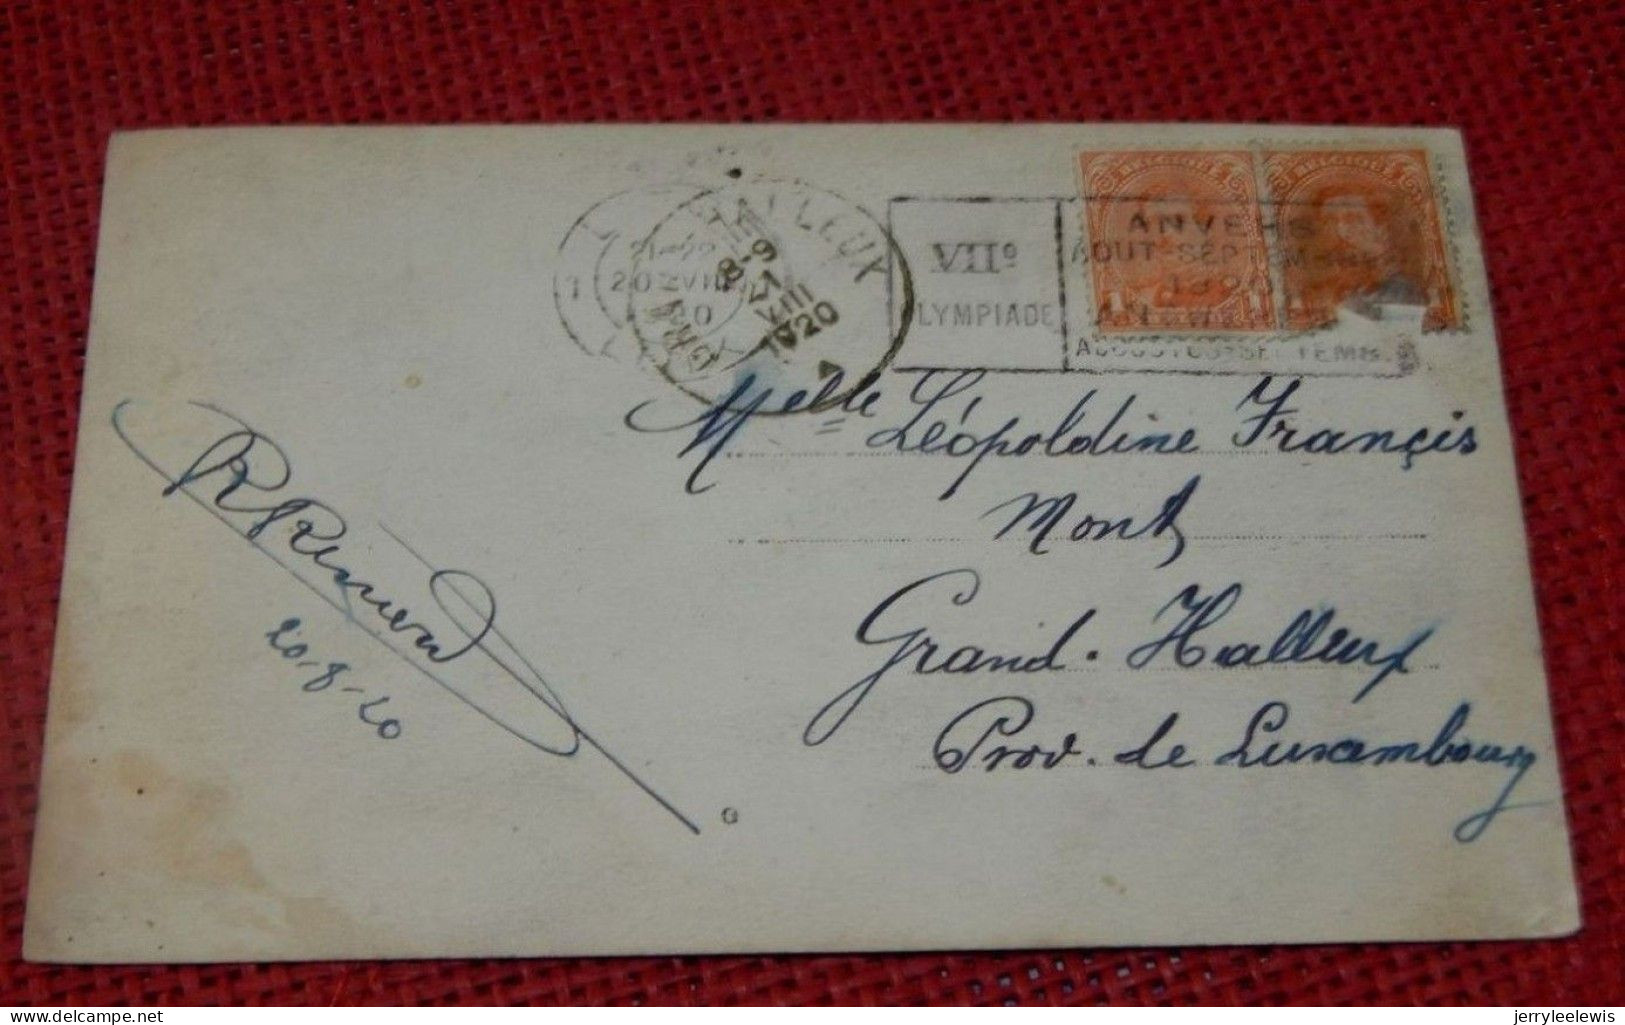 BELGIQUE BELGIQUE
1 1
VIIe
OLYMPIADE
ANVERS
AOUT-SEPTEMBRE
1920
ANTWERPEN
AUGUSTUS-SEPTEMB.
HALLEUX
8-9
VIII
1920
20 VIII
20
Melle Léopoldine Françis
Mont
Grand. Halleux
Prov. de Luxembourg
20-8-20
G
delcampe.net
jerryleelewis